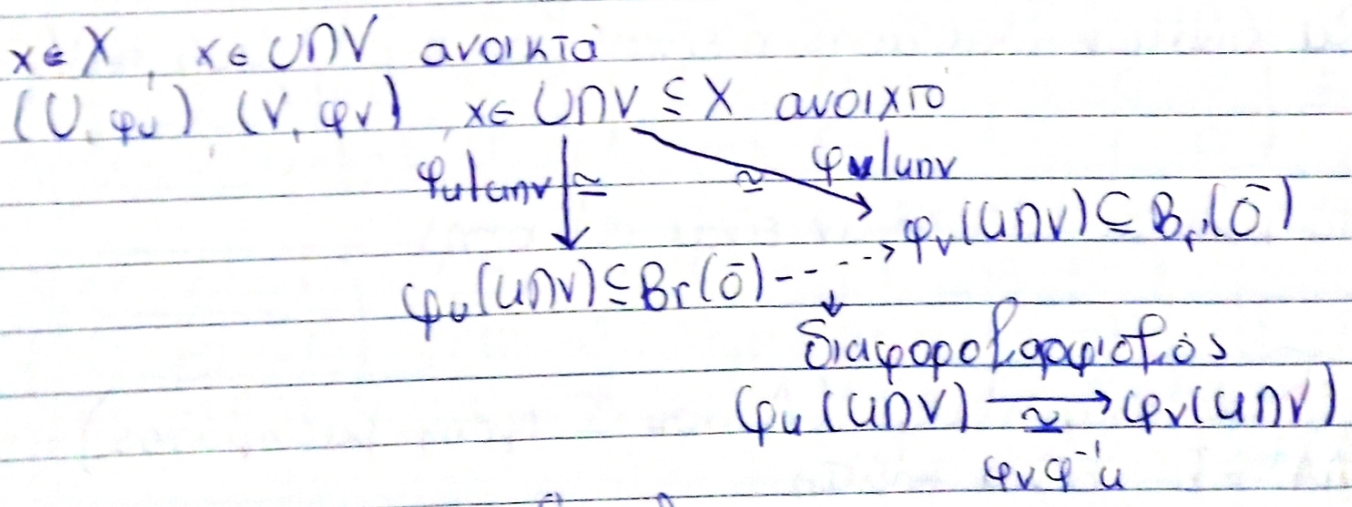 x ∈ X, x ∈ U∩V ανοικτά
(U, φ_U) (V, φ_V), x ∈ U∩V ⊆ X ανοιχτό
φ_U|U∩V ≃ ≃ φ_V|U∩V
φ_V(U∩V) ⊆ B_r'(0̄)
φ_U(U∩V) ⊆ B_r(0̄) ----→
διαφορομορφισμός
φ_U(U∩V) ⟶ ≃ φ_V(U∩V)
φ_V φ^{-1}_U